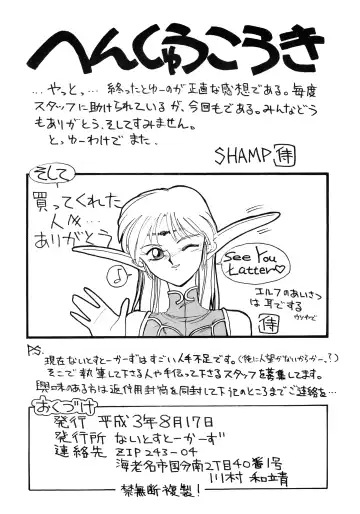 へんしゅうこうき
…やっと,… 終ったとゆーのが正直な感想である。毎度
スタッフに助けられているが、今回もである。みんなどう
もありがとう、そしてすみません。
とゆーわけで また、
SHAMP 侍
そして
買ってくれた
人々…
ありがとう
♪
See You
Latter♡
エルフのあいさつ
は耳でする
ウソやで
侍
P.S.
現在ないとすとーかーずはすごい人手不足です。(俺に人望がないからかー、?)
そこで執筆して下さる人や手伝って下さるスタッフを募集してます。
興味のある方は返信用封筒を同封して下記のところまでご連絡を…
おくづけ
発行 平成3年8月17日
発行所 ないとすとーかーず
連絡先 ZIP 243-04
海老名市国分南2丁目40番1号
川村 和立青
禁無断複製!